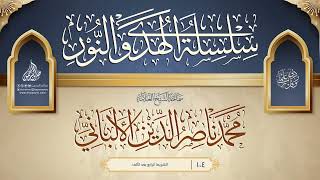 سلسلة الهدى والنور
سماحة الشيخ العلامة
محمد ناصر الدين الألباني
١٠٤
الشريط الرابع بعد المئة